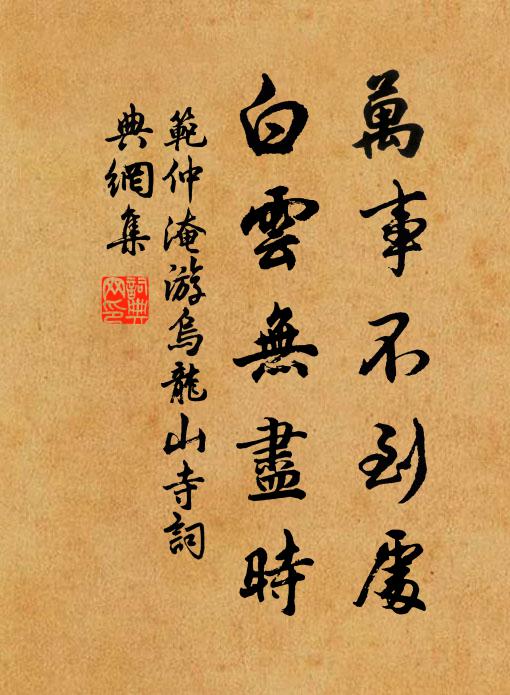 萬事不到處
白雲無盡時
範仲淹游烏龍山寺詞
典網集
詞典
网印